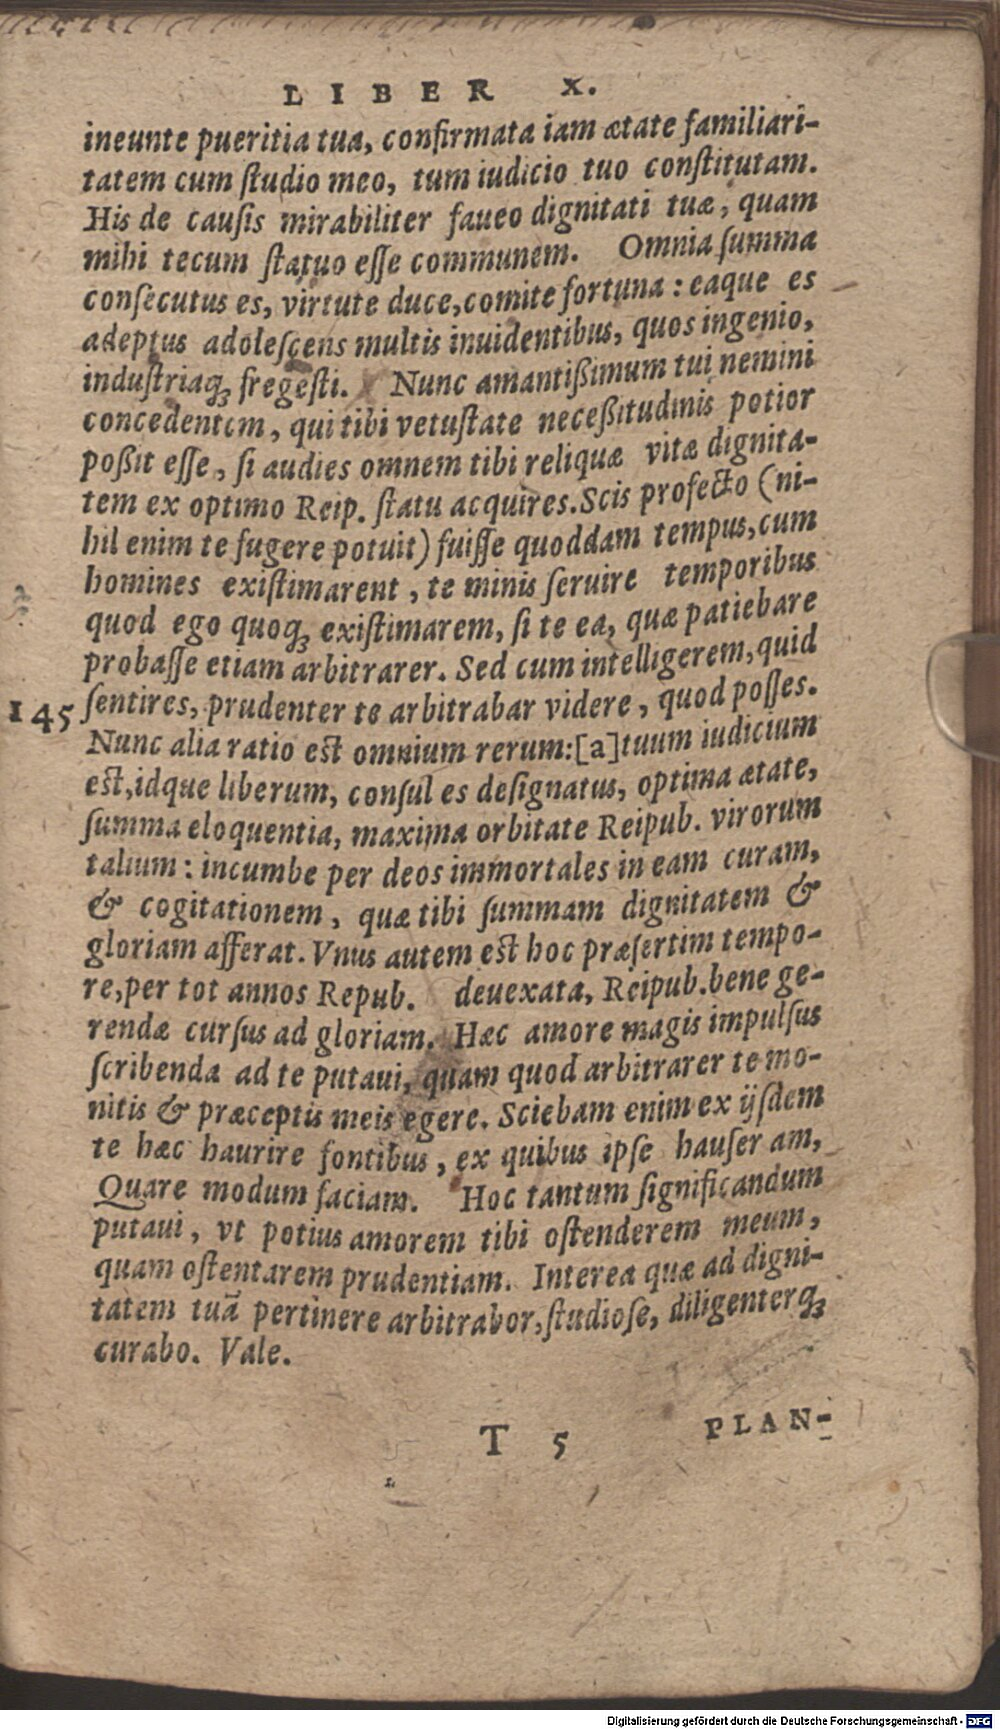 LIBER X.
ineunte pueritia tua, confirmata iam ætate familiari-
tatem cum ſtudio meo, tum iudicio tuo conſtitutam.
His de cauſis mirabiliter faueo dignitati tuæ, quam
mihi tecum ſtatuo eſſe communem. Omnia ſumma
conſecutus es, virtute duce, comite fortuna: eaque es
adeptus adoleſcens multis inuidentibus, quos ingenio,
induſtriaq́ꝫ fregeſti. Nunc amantißimum tui nemini
concedentem, qui tibi vetuſtate neceßitudinis potior
poßit eſſe, ſi audies omnem tibi reliquæ vitæ dignita-
tem ex optimo Reip. ſtatu acquires. Scis profecto (ni-
hil enim te fugere potuit) fuiſſe quoddam tempus, cum
homines exiſtimarent, te minis ſeruire temporibus
quod ego quoq́ꝫ exiſtimarem, ſi te ea, quæ patiebare
probaſſe etiam arbitrarer. Sed cum intelligerem, quid
145 ſentires, prudenter te arbitrabar videre, quod poſſes.
Nunc alia ratio est omnium rerum:[a]tuum iudicium
est, idque liberum, conſul es deſignatus, optima ætate,
ſumma eloquentia, maxima orbitate Reipub. virorum
talium: incumbe per deos immortales in eam curam,
& cogitationem, quæ tibi ſummam dignitatem &
gloriam afferat. Vnus autem est hoc præſertim tempo-
re, per tot annos Repub. deuexata, Reipub. bene ge-
rendæ curſus ad gloriam. Hæc amore magis impulſus
ſcribenda ad te putaui, quam quod arbitrarer te mo-
nitis & præceptis meis egere. Sciebam enim ex ijſdem
te hæc haurire fontibus, ex quibus ipſe hauſeram,
Quare modum faciam. Hoc tantum ſignificandum
putaui, vt potius amorem tibi oſtenderem meum,
quam oſtentarem prudentiam. Interea quæ ad digni-
tatem tuã pertinere arbitrabor, ſtudioſe, diligenterq́ꝫ
curabo. Vale.
T 5 PLAN-
Digitalisierung gefördert durch die Deutsche Forschungsgemeinschaft - DFG